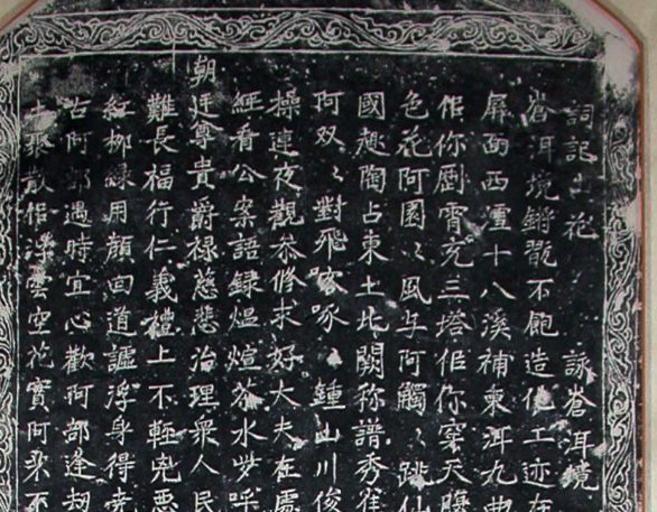 詞記山花 詠蒼洱境
蒼洱境鏘翫不飽造化工迹在
屏面西𡎺十八溪補東洱九曲
伽你霄充三塔伽你穿天
色花阿園〻風与阿觸〻跳仙
國趣陶占東土北闕称譜秀雀
阿双〻對飛啄鍾山川俊
操連夜觀叅修求好大夫在處
經看公案語録煴煊茶水呼
朝廷尊貴爵禄慈悲治理衆人民
難長福行仁義禮上不輕兇惡
紅柳緑用顔回道謳浮身得尭
古阿部遇時宜心歡阿部逢劫
聚散伽浮雲空花實阿朶不